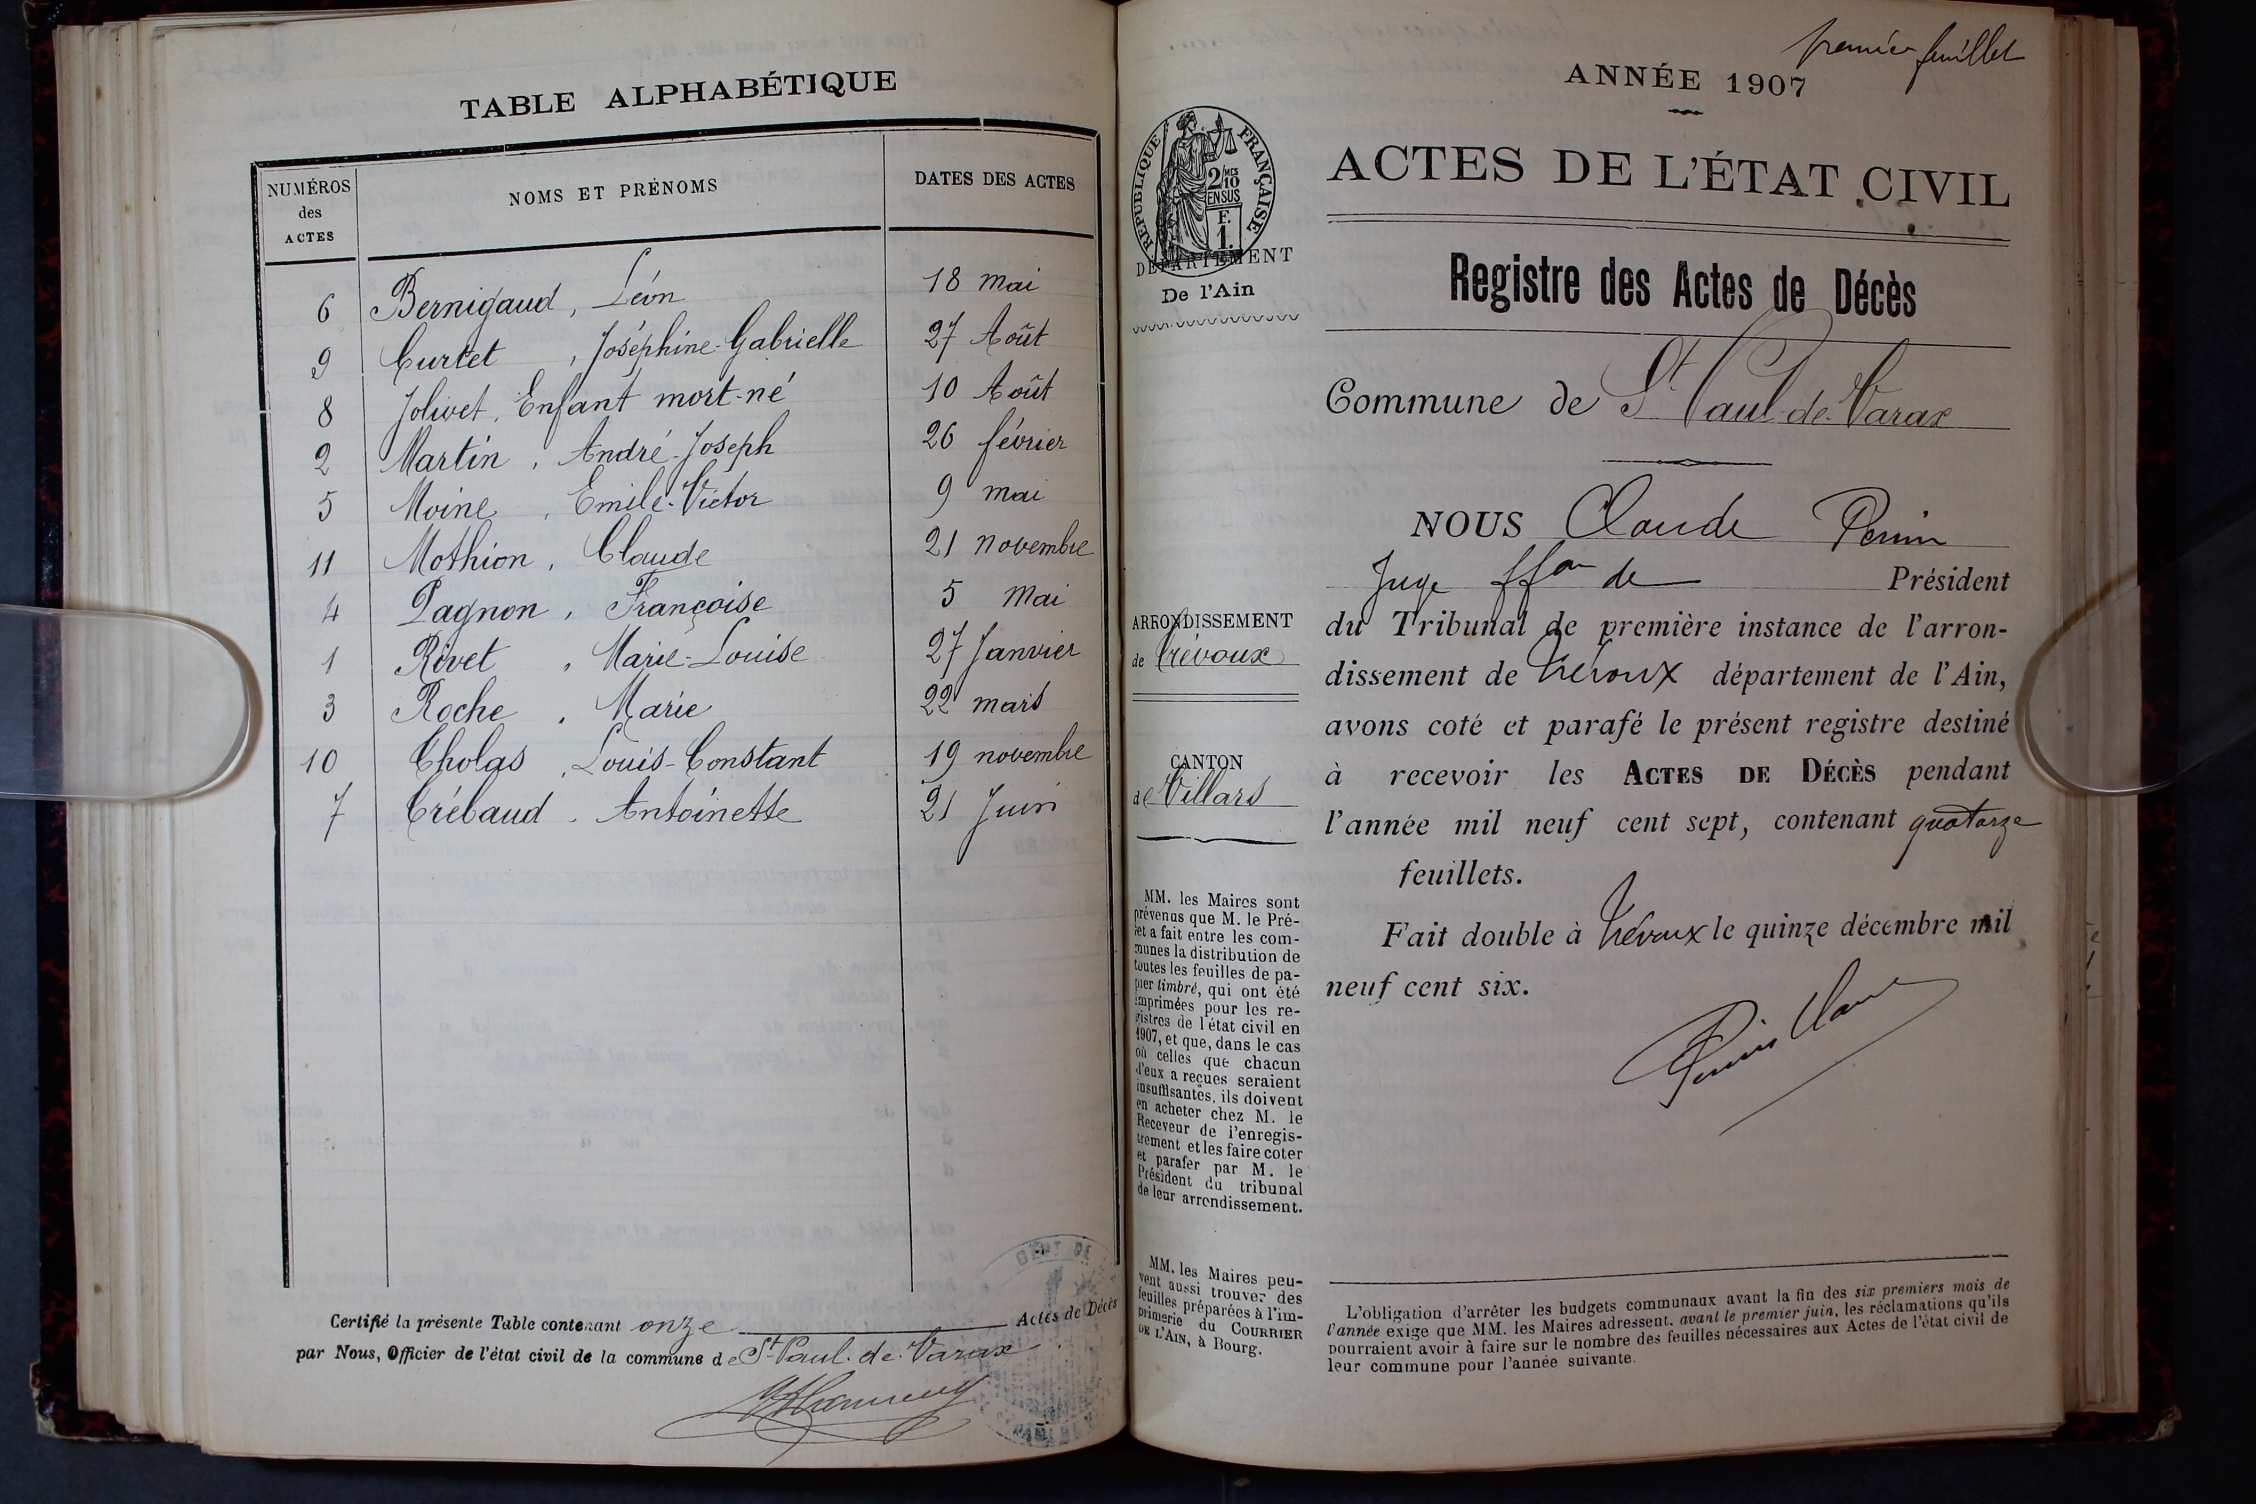 TABLE ALPHABÉTIQUE
NUMÉROS des ACTES
NOMS ET PRÉNOMS
DATES DES ACTES
6 Bernigaud, Léon 18 mai
9 Curtet, Joséphine-Gabrielle 27 Août
8 Jolivet, Enfant mort-né 10 Août
2 Martin, André-Joseph 26 février
5 Moine, Emile-Victor 9 mai
11 Mothion, Claude 21 novembre
4 Pagnon, Françoise 5 Mai
1 Rivet, Marie-Louise 27 Janvier
3 Roche, Marie 22 mars
10 Tholas, Louis-Constant 19 novembre
7 Trébaud, Antoinette 21 Juin
Certifié la présente Table contenant onze Actes de Décès
par Nous, Officier de l'état civil de la commune de St Paul-de-Varax
premier feuillet
ANNÉE 1907
RÉPUBLIQUE FRANÇAISE
2/10 EN SUS
F. 1.
DÉPARTEMENT
De l'Ain
ACTES DE L'ÉTAT CIVIL
Registre des Actes de Décès
Commune de St Paul-de-Varax
ARRONDISSEMENT
de Trévoux
CANTON
de Villars
MM. les Maires sont
prévenus que M. le Pré-
fet a fait entre les com-
munes la distribution de
toutes les feuilles de pa-
pier timbré, qui ont été
imprimées pour les re-
gistres de l'état civil en
1907, et que, dans le cas
où celles que chacun
d'eux a reçues seraient
insuffisantes, ils doivent
en acheter chez M. le
Receveur de l'enregis-
trement et les faire coter
et parafer par M. le
Président du tribunal
de leur arrondissement.
MM. les Maires peu-
vent aussi trouver des
feuilles préparées à l'im-
primerie du COURRIER
DE L'AIN, à Bourg.
NOUS Claude Perrin
Juge ffon de Président
du Tribunal de première instance de l'arron-
dissement de Trévoux département de l'Ain,
avons coté et parafé le présent registre destiné
à recevoir les ACTES DE DÉCÈS pendant
l'année mil neuf cent sept, contenant quatorze
feuillets.
Fait double à Trévoux le quinze décembre mil
neuf cent six.
L'obligation d'arrêter les budgets communaux avant la fin des six premiers mois de
l'année exige que MM. les Maires adressent, avant le premier juin, les réclamations qu'ils
pourraient avoir à faire sur le nombre des feuilles nécessaires aux Actes de l'état civil de
leur commune pour l'année suivante.